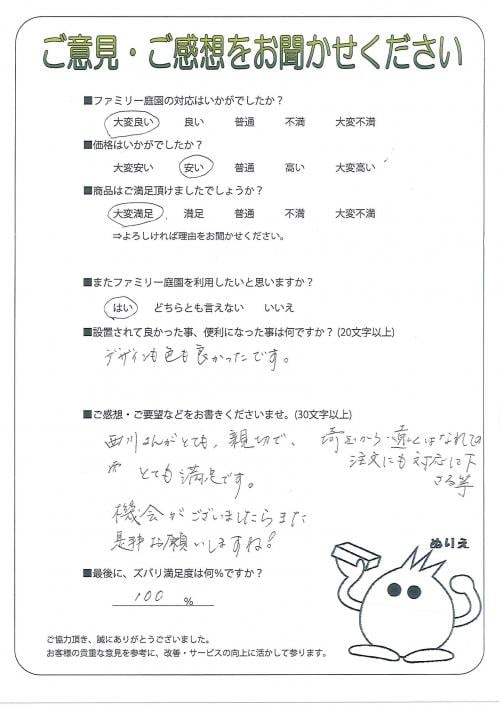 ご意見・ご感想をお聞かせください
■ファミリー庭園の対応はいかがでしたか？
大変良い 良い 普通 不満 大変不満
■価格はいかがでしたか？
大変安い 安い 普通 高い 大変高い
■商品はご満足頂けましたでしょうか？
大変満足 満足 普通 不満 大変不満
⇒よろしければ理由をお聞かせください。
■またファミリー庭園を利用したいと思いますか？
はい どちらとも言えない いいえ
■設置されて良かった事、便利になった事は何ですか？(20文字以上)
デザインも色も良かったです。
■ご感想・ご要望などをお書きくださいませ。(30文字以上)
西川さんがとても、親切で、
とても満足です。
埼玉から遠くはなれての
注文にも対応して下
さる等
機会がございましたらまた
是非お願いしますね!
ぬりえ
■最後に、ズバリ満足度は何％ですか？
100 %
ご協力頂き、誠にありがとうございました。
お客様の貴重な意見を参考に、改善・サービスの向上に活かして参ります。